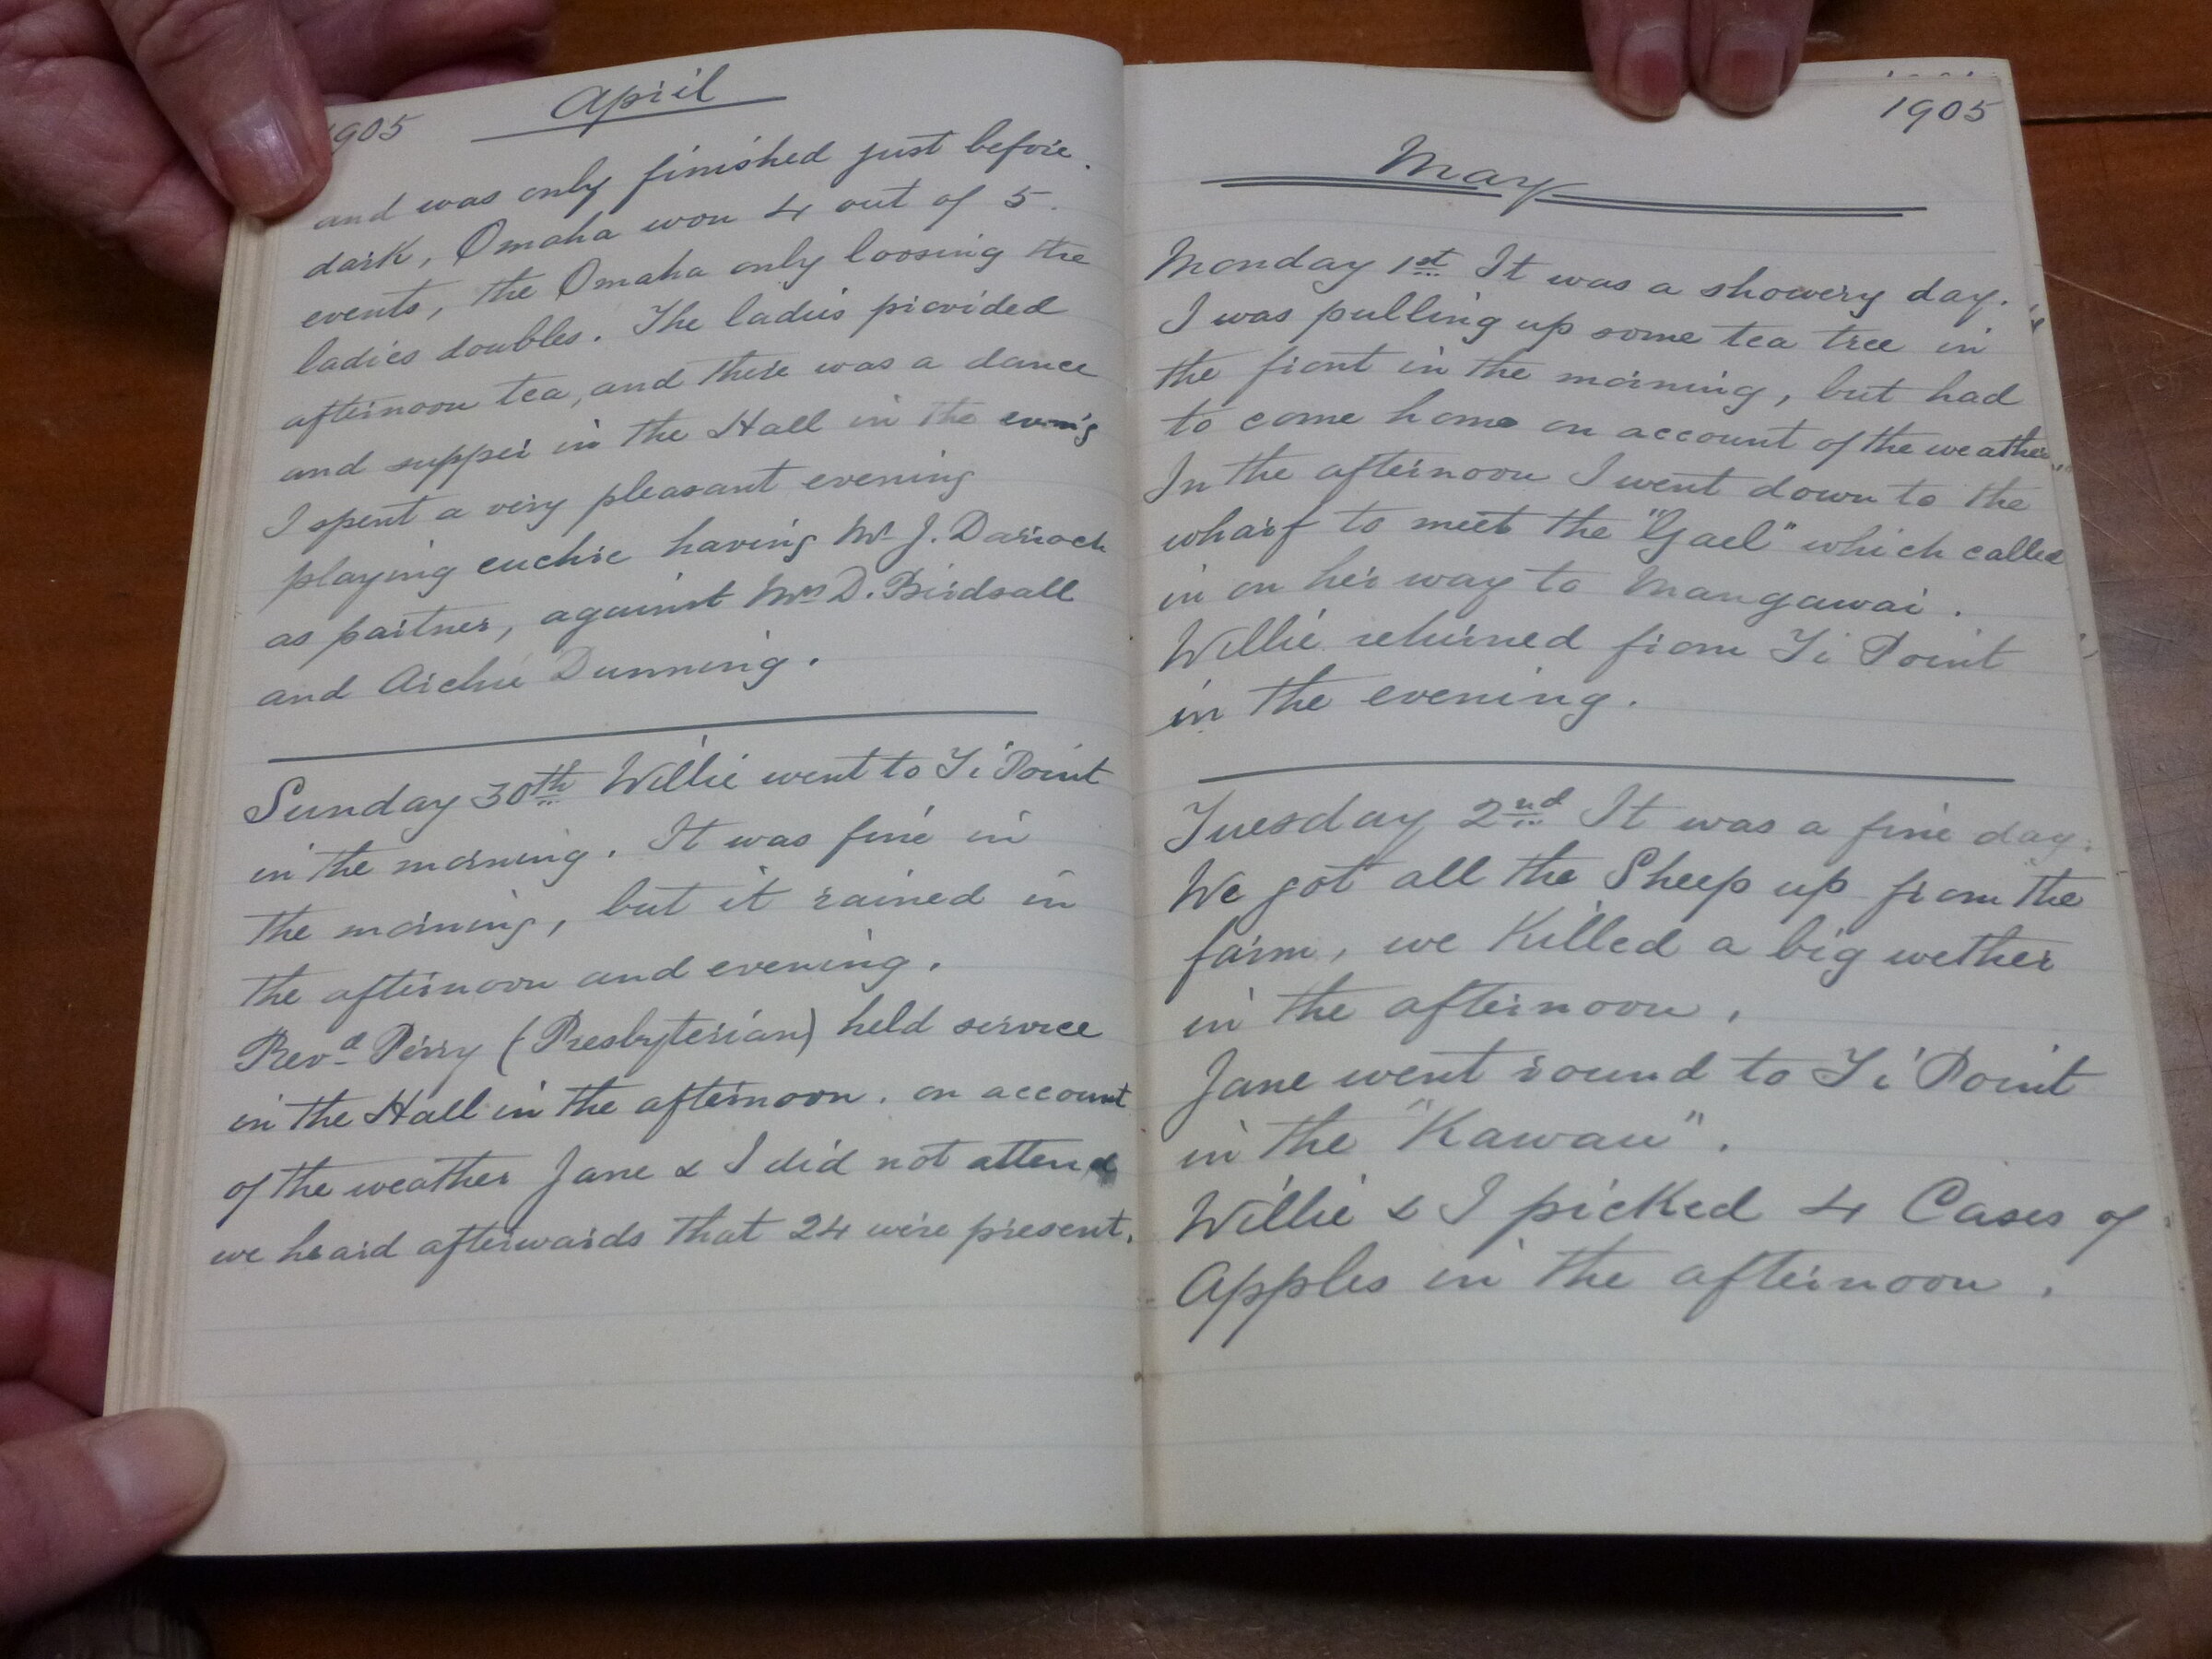 1905
April
and was only finished just before
dark, Omaha won 4 out of 5
events, the Omaha only loosing the
ladies doubles. The ladies provided
afternoon tea, and there was a dance
and supper in the Hall in the
I spent a very pleasant evening
playing euchre having Mr J. Darroch
as partner, against Mrs D. Birdsall
and Archie Dunning.
Sunday 30th Willie went to Ti Point
in the morning. It was fine in
the morning, but it rained in
the afternoon and evening.
Revd Perry (Presbyterian) held service
in the Hall in the afternoon. on account
of the weather Jane & I did not attend
we heard afterwards that 24 were present.
1905
May
Monday 1st It was a showery day.
I was pulling up some tea tree in
the front in the morning, but had
to come home on account of the weather.
In the afternoon I went down to the
wharf to meet the "Gael" which called
in on her way to Mangawai.
Willie returned from Ti Point
in the evening.
Tuesday 2nd It was a fine day.
We got all the Sheep up from the
farm, we Killed a big wether
in the afternoon.
Jane went round to Ti Point
in the "Kawau".
Willie & I picked 4 Cases of
Apples in the afternoon.